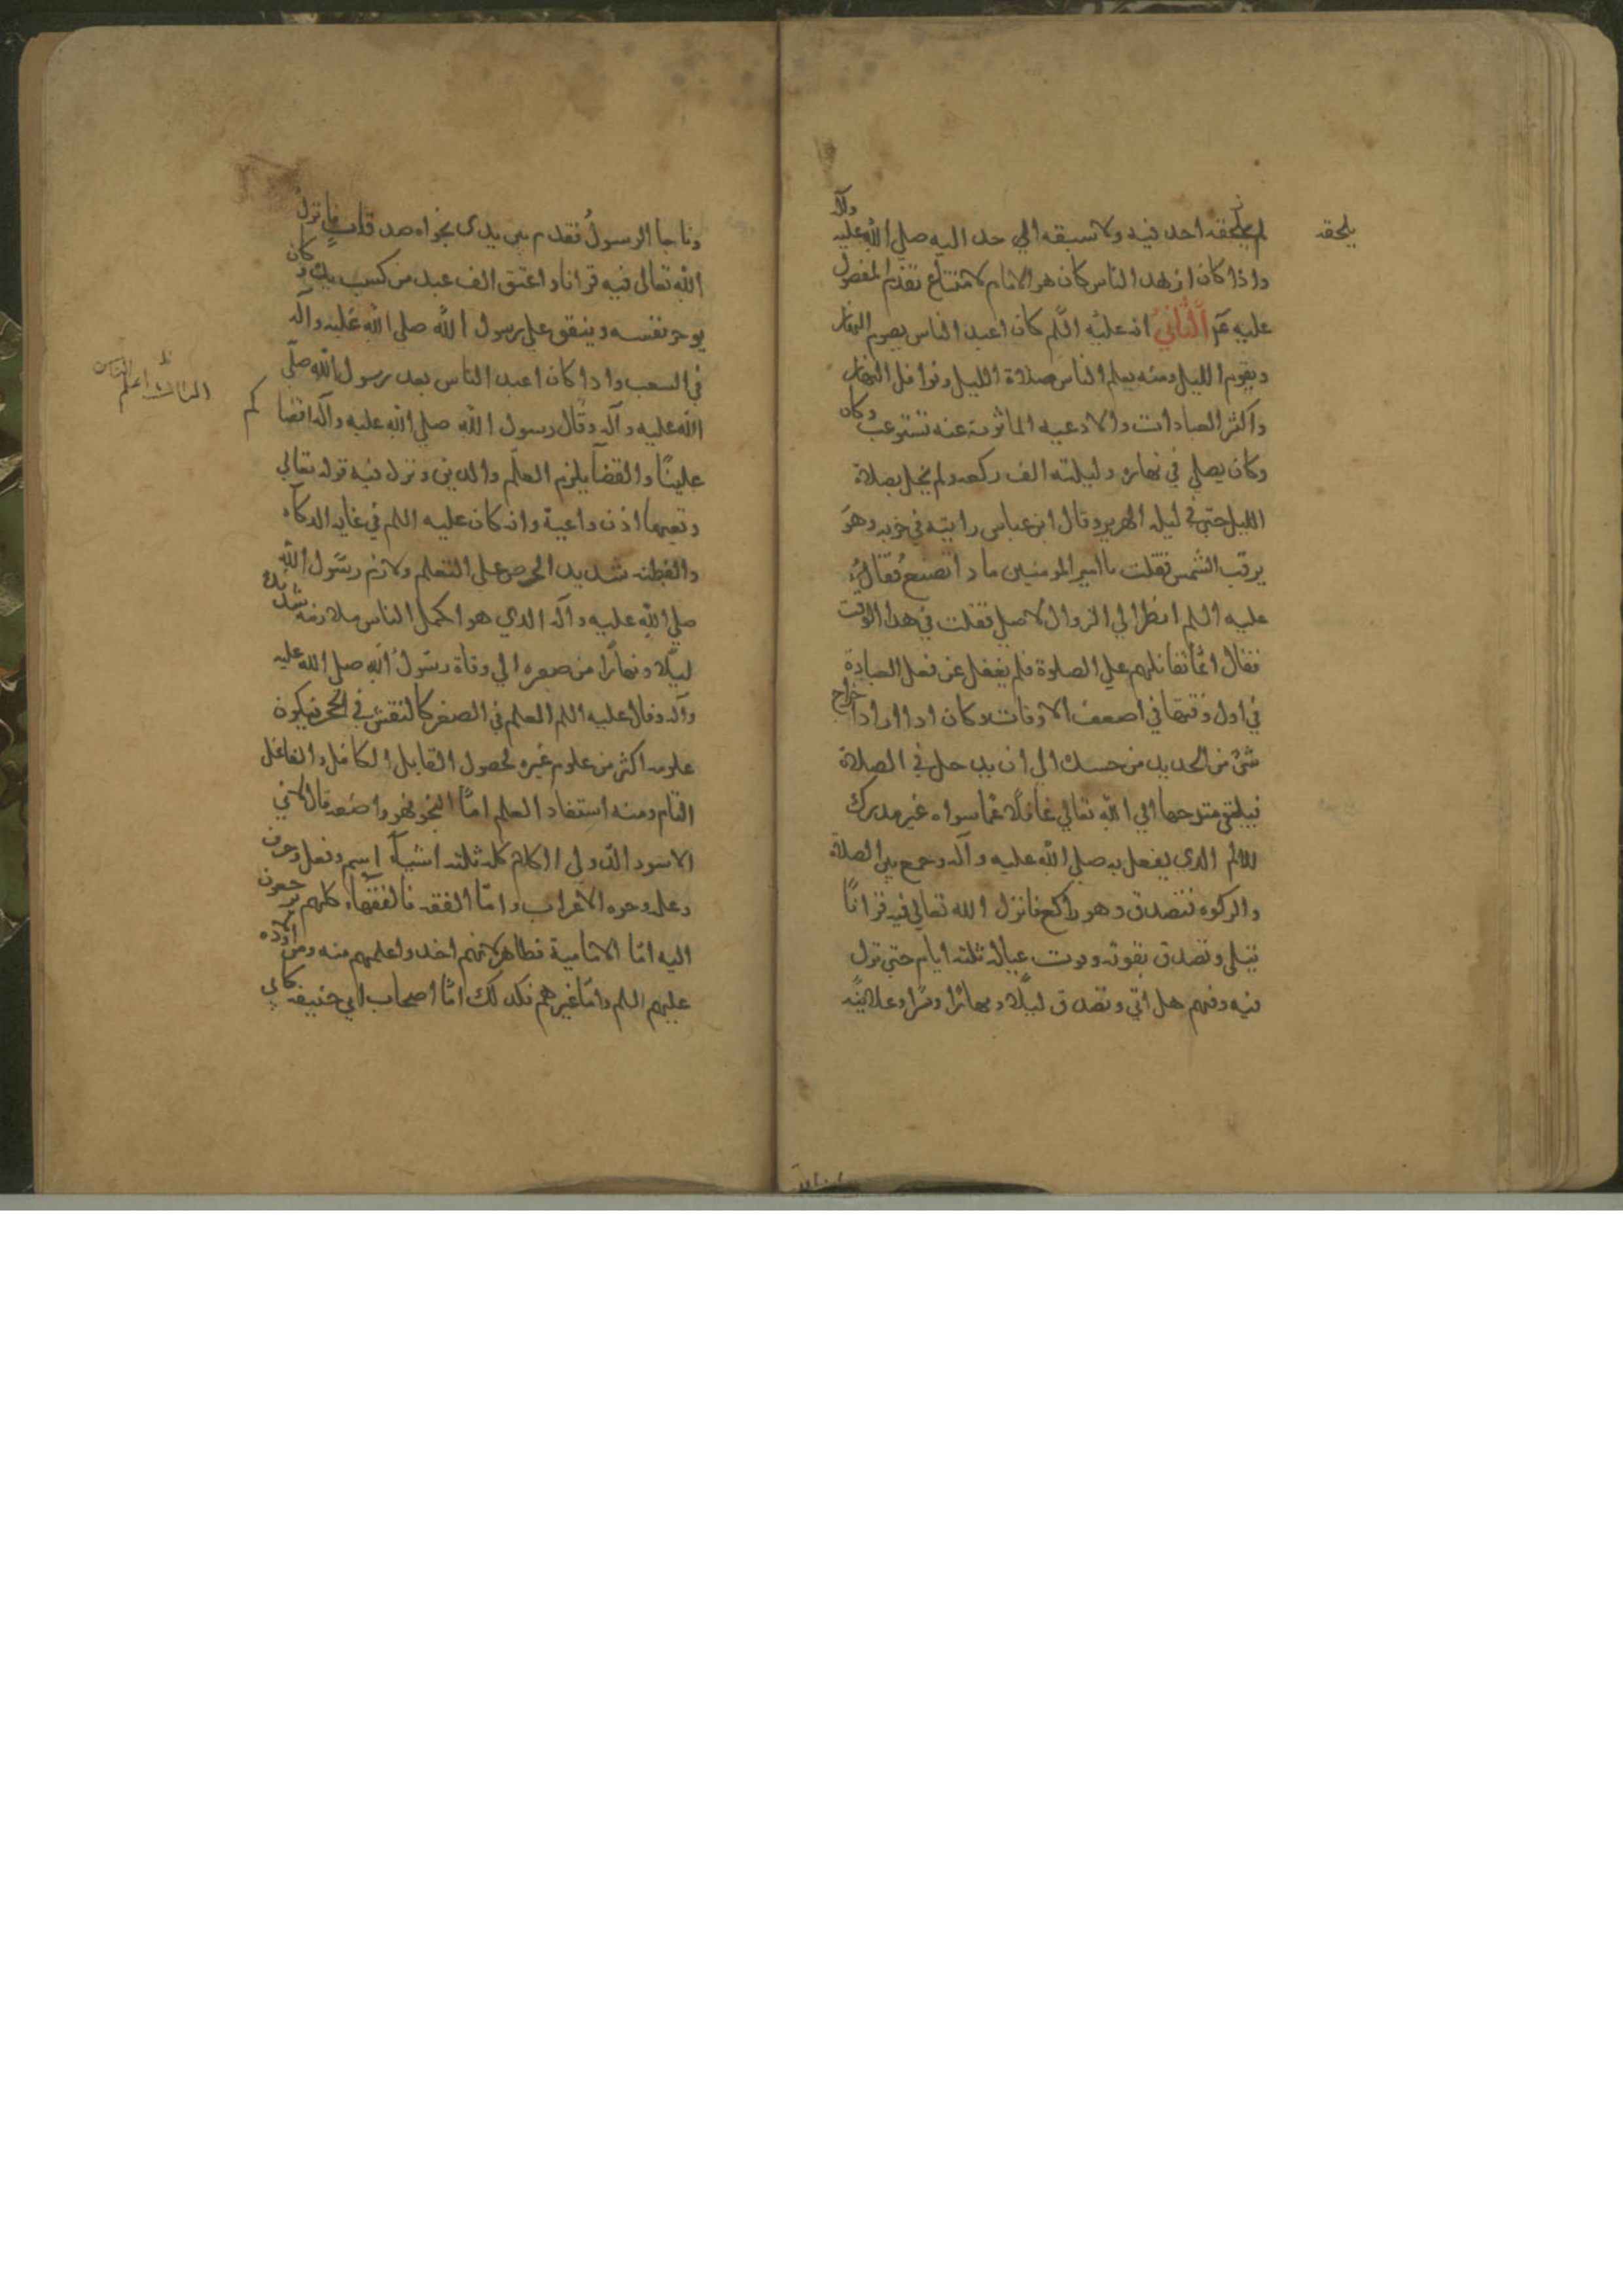 لم يلحقه احد فيه ولا سبقه الي حد اليه صلي الله عليه وآله
واذا كان ازهد الناس كان هو الامام لامتناع تقدم المفضول
عليه الثاني انه عليه اللم كان اعبد الناس يصوم النهار
ويقوم الليل ومنه يعلم الناس صلاة الليل ونوافل النهار
واكثر العبادات والادعيه الماثورة عنه تستوعب وكان
وكان يصلي في نهاره وليلته الف ركعه ولم يخل بصلاة
الليل حتي في ليلة الهرير وقال ابن عباس رايته في حربه وهو
يرقب الشمس فقلت يا امير المومنين ماذا تصنع فقال
عليه اللم انظر الي الزوال لاصلي فقلت في هذا الوقت
فقال انما نقاتلهم علي الصلوة فلم يغفل عن فعل العبادة
في اول وقتها في اصعب الاوقات وكان اذا ارادا خراج
شئ من الحديد من جسده الي ان يدخل في الصلاة
فيبقي متوجها الي الله تعالي غافلا عما سواه غير مدرك
للالم الذي يفعل به صلي الله عليه وآله وجمع بين الصلاة
والزكوه فتصدق وهو راكع فانزل الله تعالي فيه قرانا
يتلي وتصدق بقوته وقوت عياله ثلثه ايام حتي نزل
فيه وفيهم هل اتي وتصدق ليلا ونهارا وسرا وعلانية
يلحقه
وناجا الرسول فقدم بين يدي نجواه صدقات فانزل
الله تعالى فيه قرانا واعتق الف عبد من كسب يده وكان
يوجر نفسه وينفق علي رسول الله صلي الله عليه وآله
في الشعب واذا كان اعبد الناس بعد رسول الله صلي
الله عليه وآله وقال رسول الله صلي الله عليه وآله اقضاكم
عليا والقضا يلزم العلم والدين ونزل فيه قوله تعالي
وتعيها اذن واعية وانه كان عليه اللم في غاية الذكاء
والفطنه شديد الحرص علي التعلم ولازم رسول الله
صلي الله عليه وآله الذي هو اكمل الناس ملازمه شديدة
ليلا ونهارا من صغره الي وفاة رسول الله صلي الله عليه
وآله وقال عليه اللم العلم في الصغر كالنقش في الحجر فيكون
علومه اكثر من علوم غيره لحصول القابل الكامل والفاعل
التام ومنه استفاد العلم اما النحو فهو واضعه قال لابي
الاسود الدولي الكلام كله ثلثه اشيآء اسم وفعل وحرف
وعلمه وجوه الاعراب واما الفقه فالفقهاء كلهم يرجعون
اليه اما الامامية فظاهر لانهم اخذوا علمهم منه ومن اولاده
عليهم اللم واما غيرهم فكذلك اما اصحاب ابي حنيفه كابي
الثالث اعلم الناس